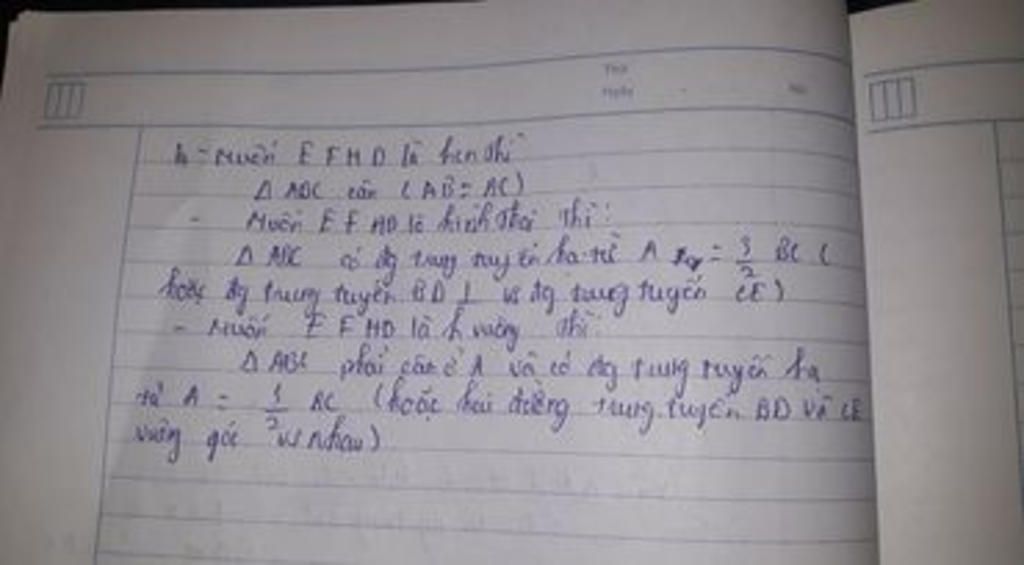 Thứ
Ngày
No
b - Muốn EFHD là hcn thì
Δ ABC cân (AB = AC)
- Muốn EFHD là hình thoi thì:
Δ ABC có đg trung tuyến hạ từ A = 3/2 BC (
hoặc đg trung tuyến BD ⊥ vs đg trung tuyến CE)
- Muốn EFHD là h vuông thì:
Δ ABC phải cân ở A và có đg trung tuyến hạ
từ A = 3/2 BC (hoặc hai đường trung tuyến BD và CE
vuông góc vs nhau)